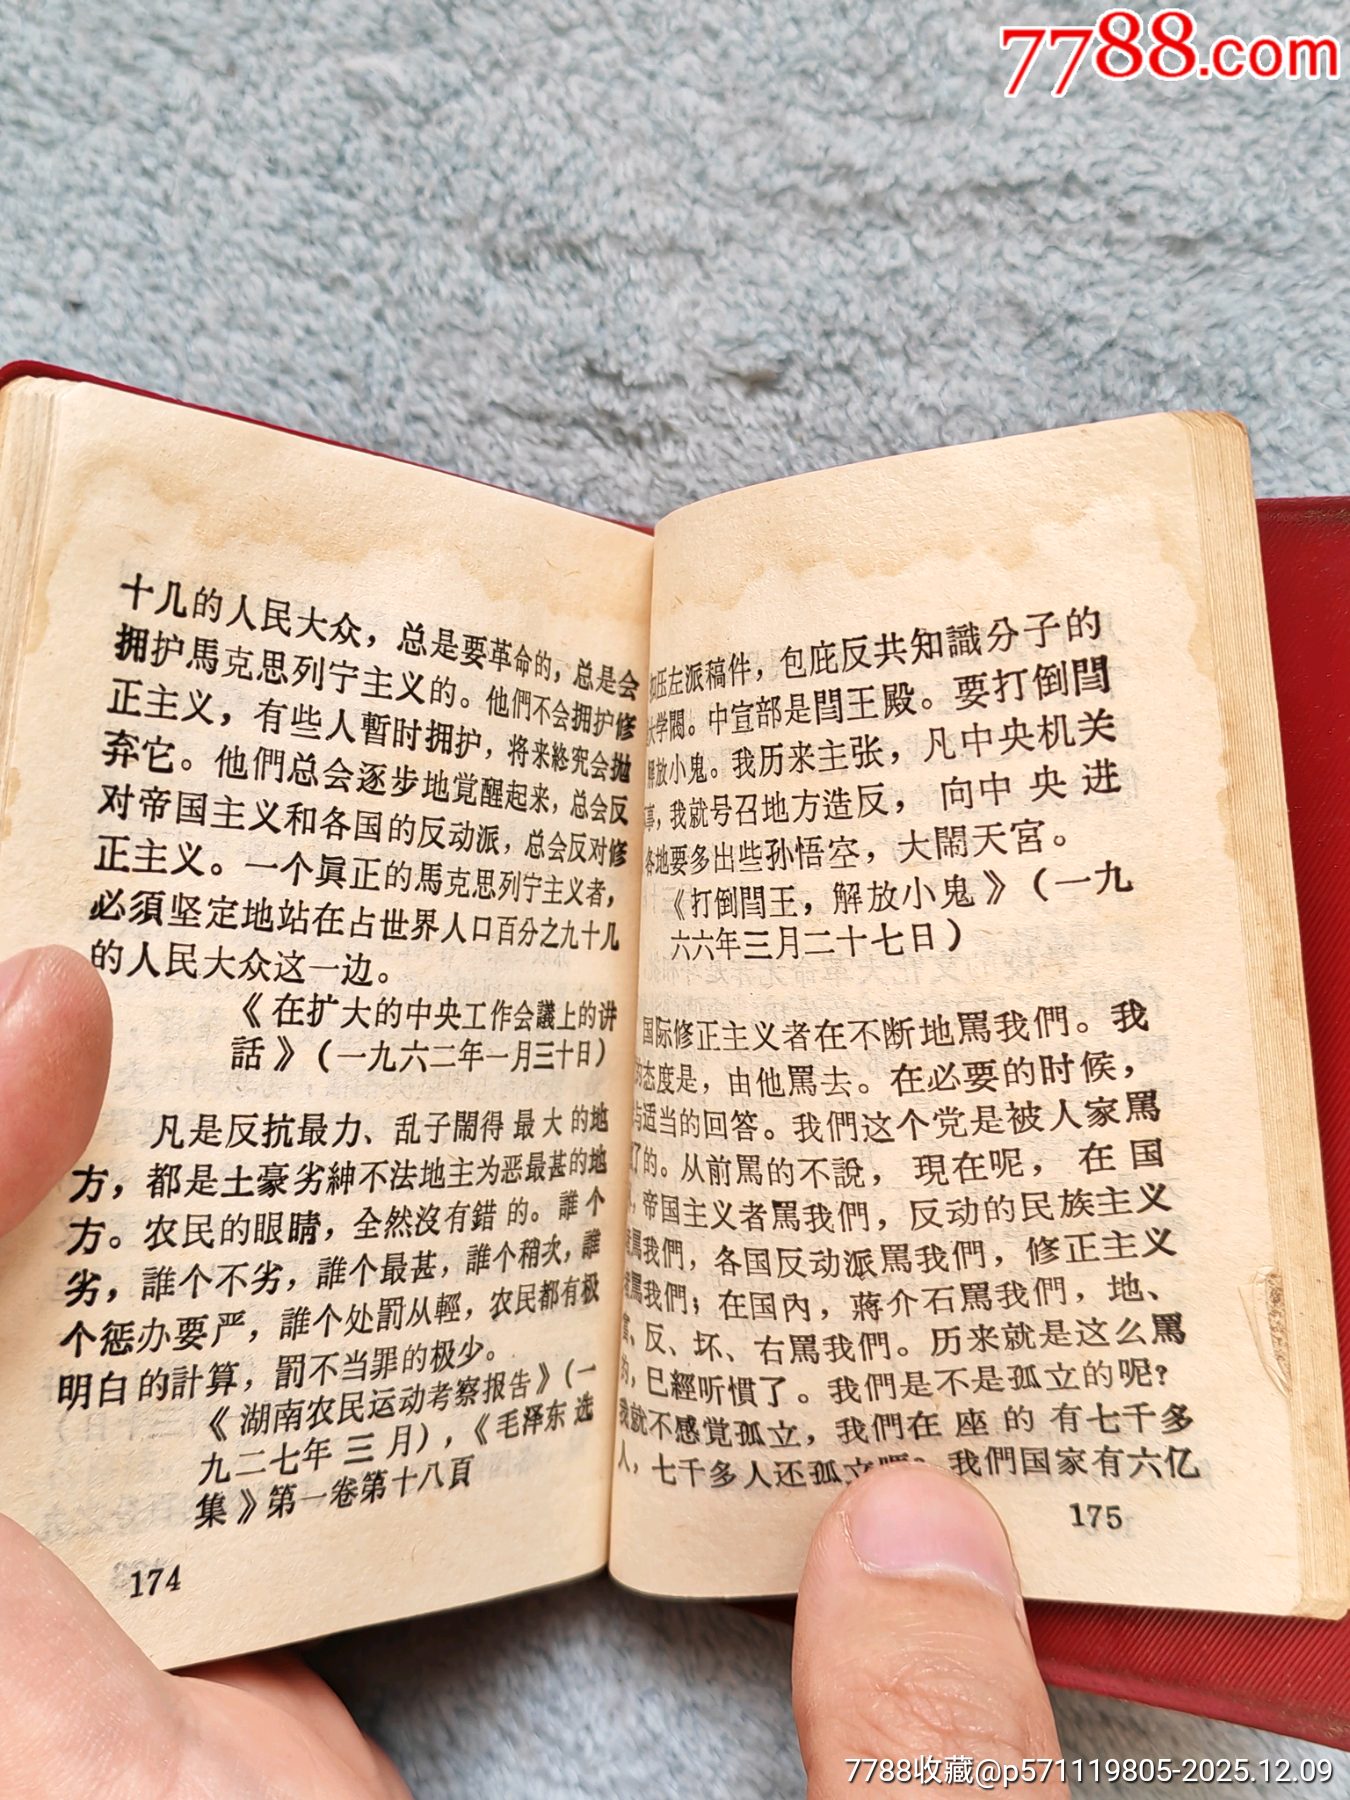 7788.com
十几的人民大众，总是要革命的，总是会
拥护馬克思列宁主义的。他們不会拥护修
正主义，有些人暫时拥护，将来終究会抛
弃它。他們总会逐步地覚醒起来，总会反
对帝国主义和各国的反动派，总会反对修
正主义。一个眞正的馬克思列宁主义者，
必須坚定地站在占世界人口百分之九十几
的人民大众这一边。
《在扩大的中央工作会議上的讲
話》（一九六二年一月三十日）
凡是反抗最力、乱子鬧得最大的地
方，都是土豪劣紳不法地主为恶最甚的地
方。农民的眼睛，全然沒有錯的。誰个
劣，誰个不劣，誰个最甚，誰个稍次，誰
个惩办要严，誰个处罰从輕，农民都有极
明白的計算，罰不当罪的极少。
《湖南农民运动考察报告》（一
九二七年三月），《毛泽东选
集》第一卷第十八頁
174
左派稿件，包庇反共知識分子的
学閥。中宣部是閻王殿。要打倒閻
解放小鬼。我历来主张，凡中央机关
事，我就号召地方造反，向中央进
各地要多出些孙悟空，大鬧天宮。
《打倒閻王，解放小鬼》（一九
六六年三月二十七日）
国际修正主义者在不断地罵我們。我
态度是，由他罵去。在必要的时候，
与适当的回答。我們这个党是被人家罵
了的。从前罵的不說，現在呢，在国
，帝国主义者罵我們，反动的民族主义
罵我們，各国反动派罵我們，修正主义
罵我們；在国內，蔣介石罵我們，地、
、反、坏、右罵我們。历来就是这么罵
的，已經听慣了。我們是不是孤立的呢？
我就不感覚孤立，我們在座的有七千多
人，七千多人还孤立 我們国家有六亿
175
7788收藏@p571119805-2025.12.09